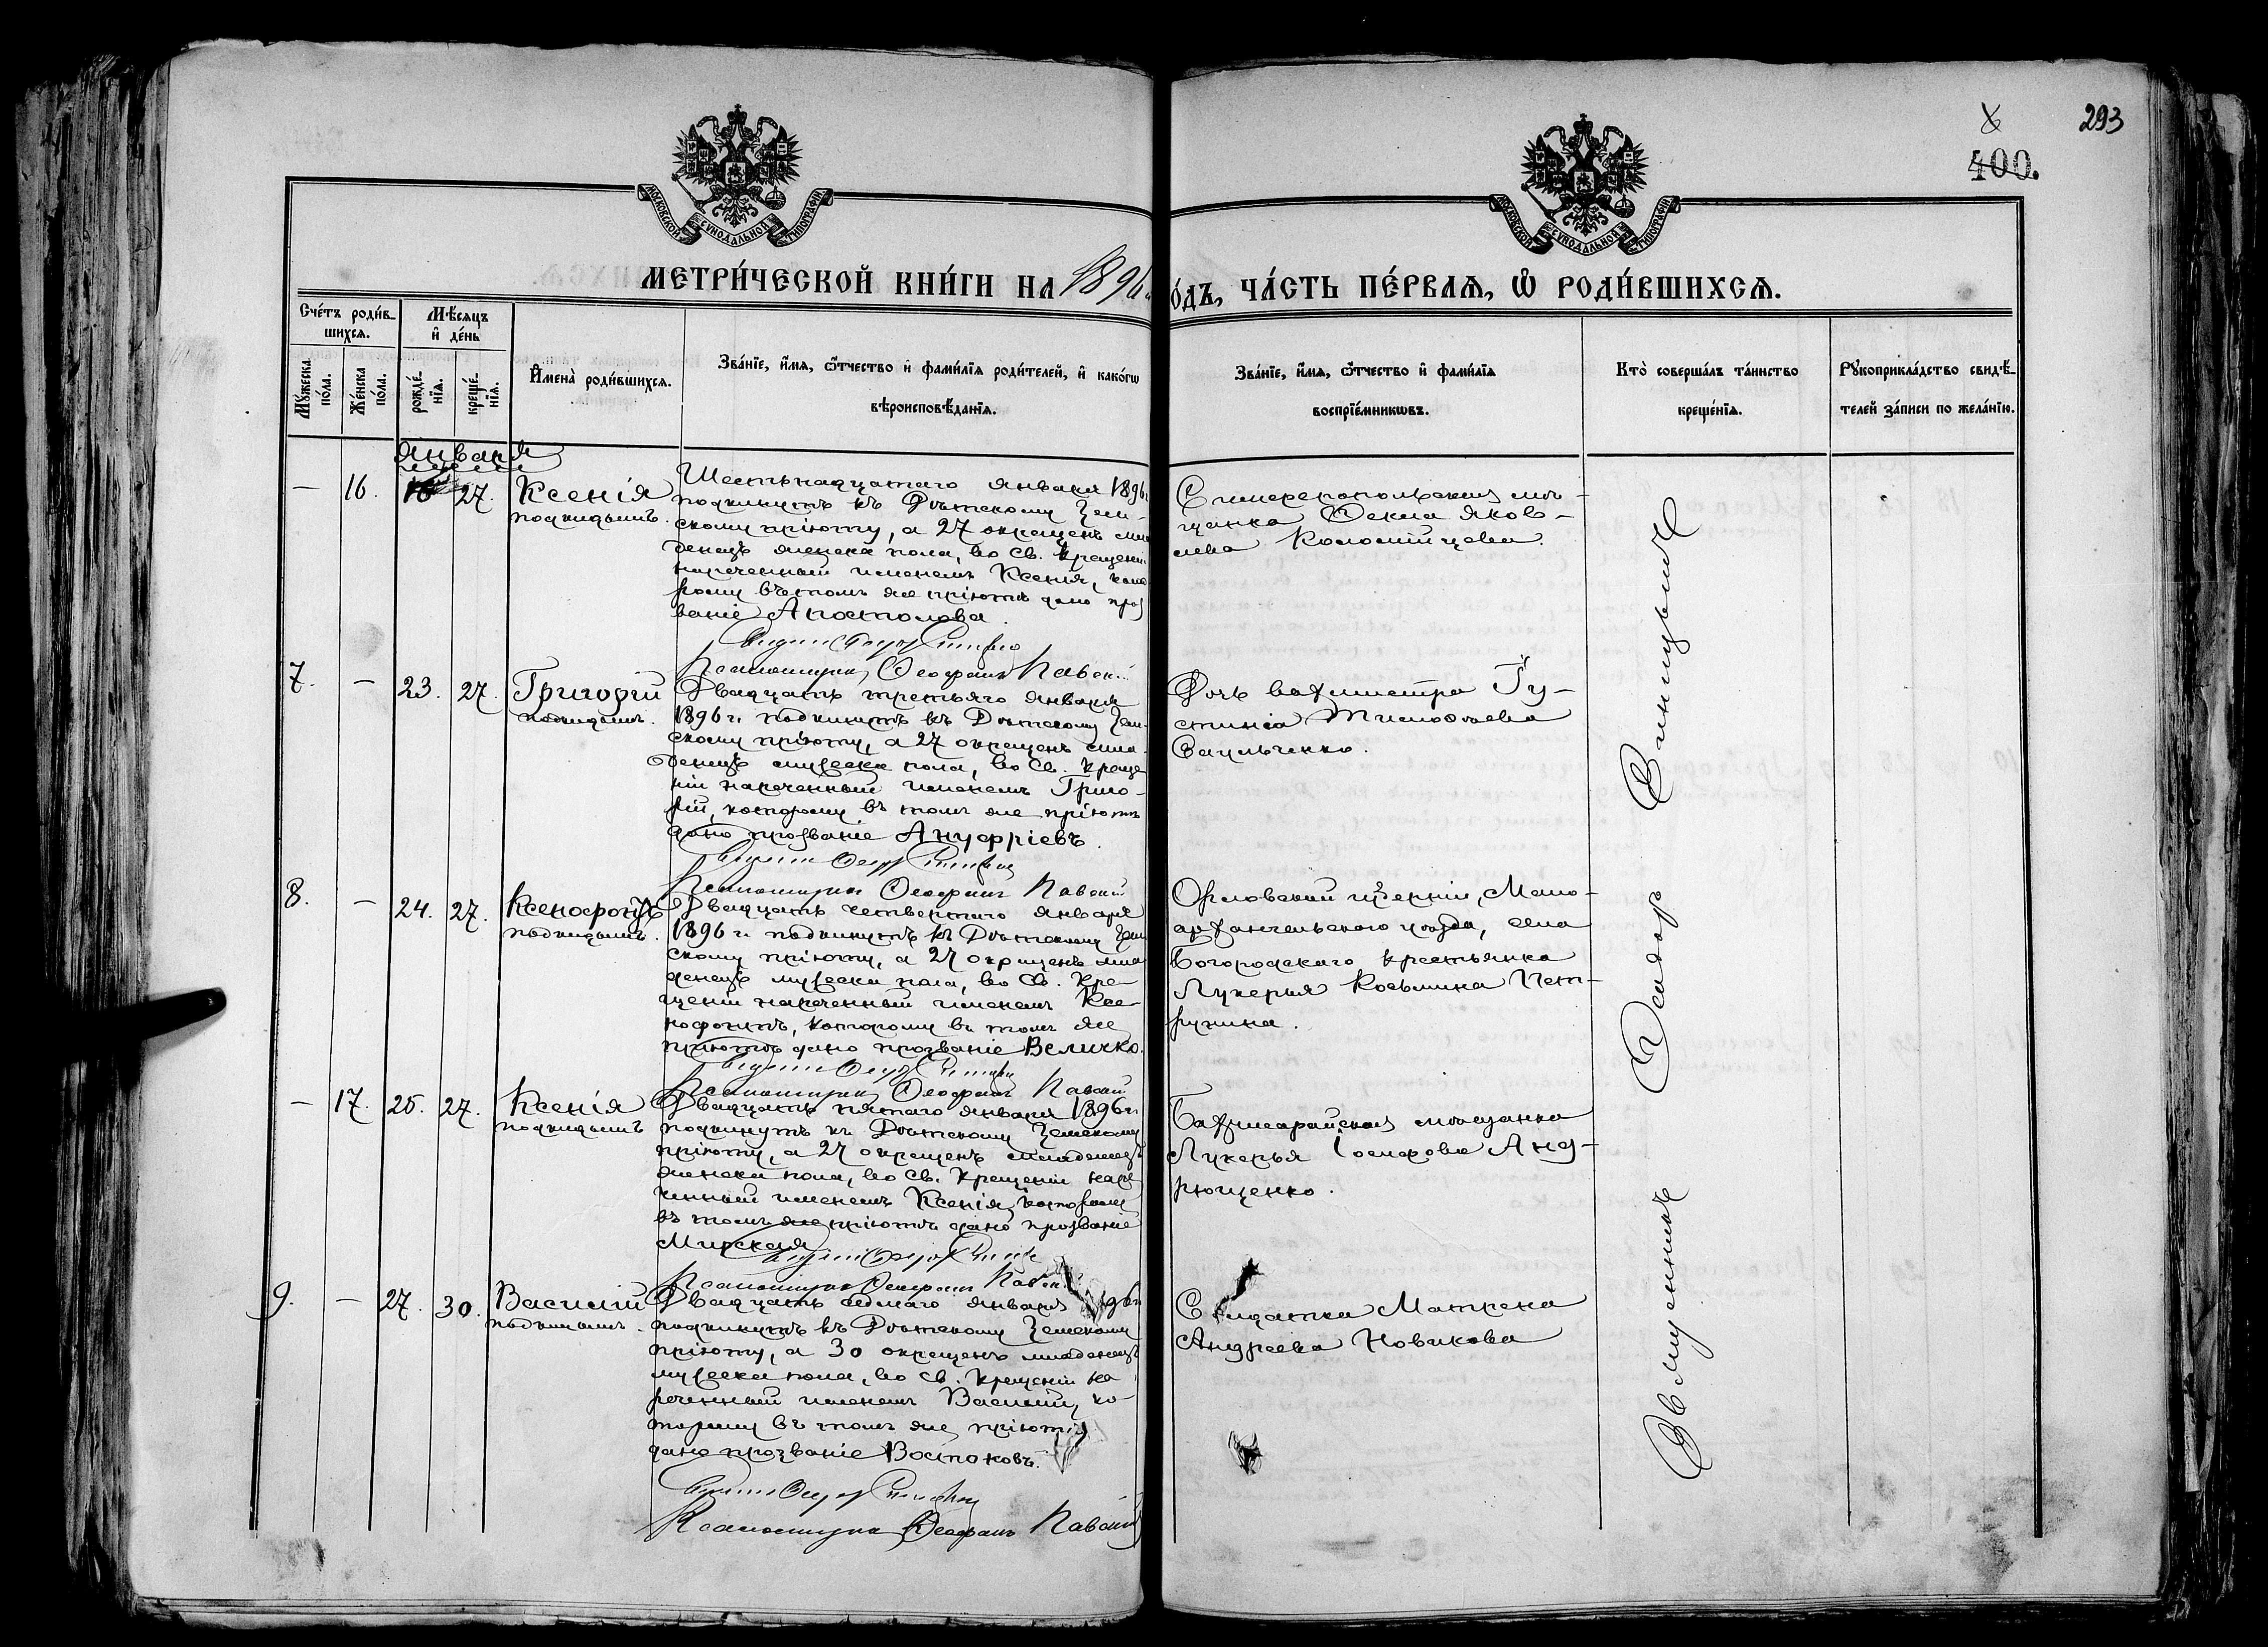 293
400.
МОСКОВСКОЙ СѴНОДАЛЬНОЙ ТИПОГРАФІИ
МОСКОВСКОЙ СѴНОДАЛЬНОЙ ТИПОГРАФІИ
МЕТРИ́ЧЕСКОЙ КНИ́ГИ НА 1896
ОДЪ, ЧА́СТЬ ПЕ́РВАѦ, Ѡ РОДИ́ВШИХСѦ.
Сче́тъ роди́в-
шихсѧ.
Мꙋ́жеска по́ла.
Же́нска по́ла.
Мѣ́сѧцъ
и҆ де́нь
рожде́-
нїѧ.
креще́-
нїѧ.
И҆мена̀ роди́вшихсѧ.
Зва́нїе, и҆́мѧ, ѻ҆́тчество и҆ фами́лїѧ роди́телей, и҆ како́гѡ
вѣроисповѣ́данїѧ.
Зва́нїе, и҆́мѧ, ѻ҆́тчество и҆ фами́лїѧ
воспрїе́мникѡвъ.
Кто̀ соверша́лъ та́инство
креще́нїѧ.
Рꙋкоприкла́дство свидѣ́-
телей за́писи по жела́нїю.
Января
— 16. 16 27. Ксенія
подкидышъ.
Шестьнадцатаго Января 1896г.
подкинутъ къ Дѣтскому Зем-
скому пріюту, а 27 окрещенъ мла
денецъ женска пола, во Св. Крещеніи
нареченный именемъ Ксенія, кото
рому въ томъ же пріютѣ дано проз
ваніе Апостолова.
Псаломщикъ Феофанъ
Симферопольская мѣ-
щанка Фекла Яков-
лева Коломійцева.
7. — 23. 27. Григорій
подкидышъ.
Двадцать третьяго Января
1896 г. подкинутъ къ Дѣтскому Зем-
скому пріюту, а 27 окрещенъ мла-
денецъ мужеска пола, во Св. Креще
ніи нареченный именемъ Григо-
рій, которому въ томъ же пріютѣ
дано прозваніе Ануфріевъ.
Псаломщикъ Феофанъ
Дочь вахмистра Іу-
стинія Тимофѣева
8. — 24. 27. Ксенофонтъ
подкидышъ.
Двадцать четвертаго Января
1896 г. подкинутъ къ Дѣтскому Зем
скому пріюту, а 27 окрещенъ мла
денецъ мужеска пола, во Св. Кре-
щеніи нареченный именемъ Ксе-
нофонтъ, которому въ томъ же
пріютѣ дано прозваніе Величко.
Псаломщикъ Феофанъ
Орловской губерніи, Мало-
архангельскаго уѣзда, села
Богородскаго крестьянка
Лукерья Козьмина Пет-
рунина.
— 17. 25. 27. Ксенія
подкидышъ
Двадцать пятаго Января 1896 г.
подкинутъ къ Дѣтскому Земскому
пріюту, а 27 окрещенъ младенецъ
женска пола, во Св. Крещеніи наре
ченный именемъ Ксенія, которому
въ томъ же пріютѣ дано прозваніе
Мирская
Псаломщикъ Феофанъ
Бахчисарайская мѣщанка
Лукерья Іосифова Анд-
рющенко.
9. — 27. 30. Василій
подкидышъ.
Двадцать седмаго Января 96 г.
подкинутъ къ Дѣтскому Земскому
пріюту, а 30 окрещенъ младенецъ
мужеска пола, во Св. Крещеніи на
реченный именемъ Василій, ко-
торому въ томъ же пріютѣ
дано прозваніе Востоковъ.
Псаломщикъ Феофанъ
Солдатка Матрена
Андреева Новикова
Священникъ Ѳеодоръ